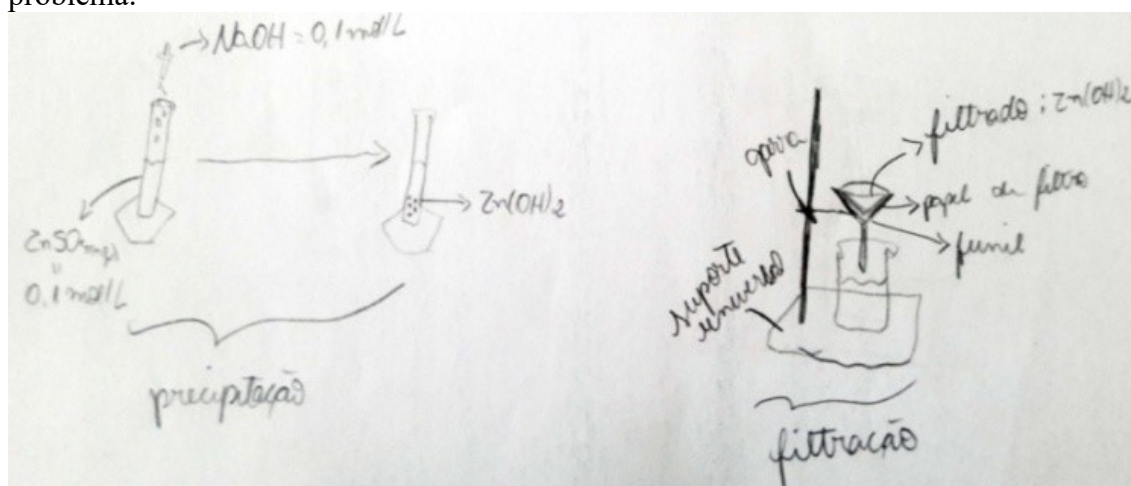 problema.
→ NaOH = 0,1 mol/L
Zn(OH)2
ZnSO4(aq)
"
0,1 mol/L
precipitação
garra
filtrado: Zn(OH)2
papel de filtro
funil
suporte
universal
filtração